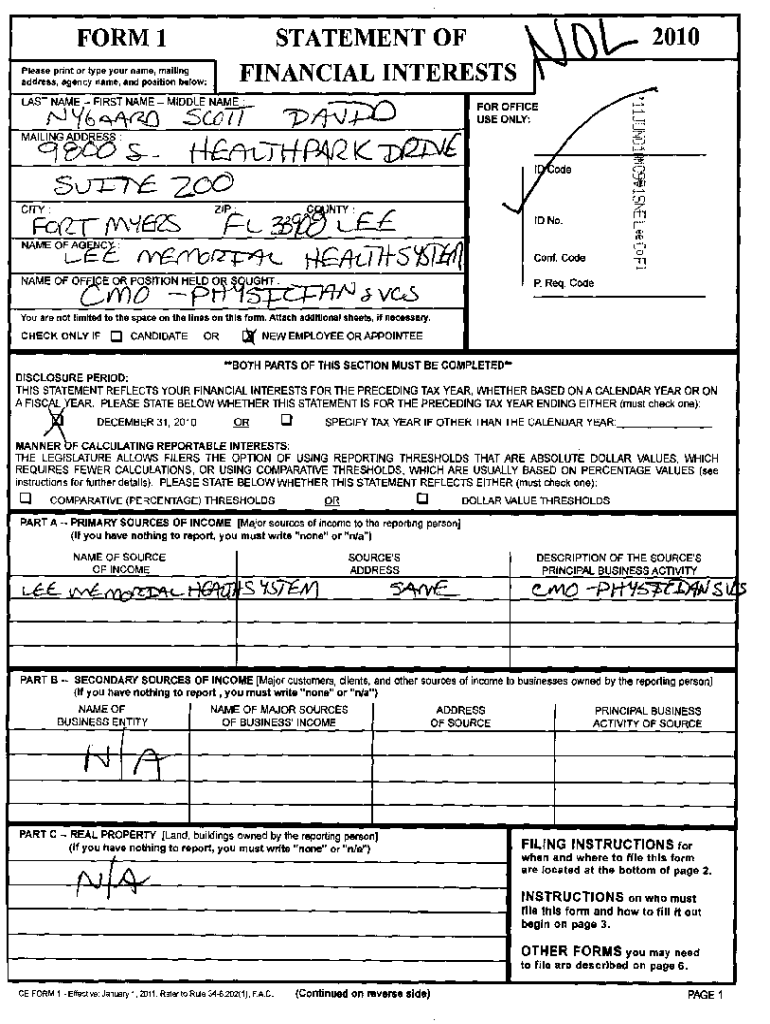 FORM 1 STATEMENT OF 2010
NOL
Please print or type your name, mailing
address, agency name, and position below:
FINANCIAL INTERESTS
LAST NAME -- FIRST NAME -- MIDDLE NAME :
NYGAARD SCOTT DAVID
MAILING ADDRESS :
9800 S. HEALTHPARK DRIVE
SUITE 200
CITY : ZIP : COUNTY :
FORT MYERS FL 33908 LEE
NAME OF AGENCY :
LEE MEMORIAL HEALTH SYSTEM
NAME OF OFFICE OR POSITION HELD OR SOUGHT :
CMO - PHYSICIAN SVCS
You are not limited to the space on the lines on this form. Attach additional sheets, if necessary.
CHECK ONLY IF CANDIDATE OR NEW EMPLOYEE OR APPOINTEE
FOR OFFICE
USE ONLY:
ID Code
ID No.
Conf. Code
P. Req. Code
**BOTH PARTS OF THIS SECTION MUST BE COMPLETED**
DISCLOSURE PERIOD:
THIS STATEMENT REFLECTS YOUR FINANCIAL INTERESTS FOR THE PRECEDING TAX YEAR, WHETHER BASED ON A CALENDAR YEAR OR ON
A FISCAL YEAR. PLEASE STATE BELOW WHETHER THIS STATEMENT IS FOR THE PRECEDING TAX YEAR ENDING EITHER (must check one):
DECEMBER 31, 2010 OR SPECIFY TAX YEAR IF OTHER THAN THE CALENDAR YEAR:
MANNER OF CALCULATING REPORTABLE INTERESTS:
THE LEGISLATURE ALLOWS FILERS THE OPTION OF USING REPORTING THRESHOLDS THAT ARE ABSOLUTE DOLLAR VALUES, WHICH
REQUIRES FEWER CALCULATIONS, OR USING COMPARATIVE THRESHOLDS, WHICH ARE USUALLY BASED ON PERCENTAGE VALUES (see
instructions for further details). PLEASE STATE BELOW WHETHER THIS STATEMENT REFLECTS EITHER (must check one):
COMPARATIVE (PERCENTAGE) THRESHOLDS OR DOLLAR VALUE THRESHOLDS
PART A -- PRIMARY SOURCES OF INCOME [Major sources of income to the reporting person]
(If you have nothing to report, you must write "none" or "n/a")
NAME OF SOURCE SOURCE'S DESCRIPTION OF THE SOURCE'S
OF INCOME ADDRESS PRINCIPAL BUSINESS ACTIVITY
LEE MEMORIAL HEALTH SYSTEM SAME CMO - PHYSICIAN SVCS
PART B -- SECONDARY SOURCES OF INCOME [Major customers, clients, and other sources of income to businesses owned by the reporting person]
(If you have nothing to report , you must write "none" or "n/a")
NAME OF NAME OF MAJOR SOURCES ADDRESS PRINCIPAL BUSINESS
BUSINESS ENTITY OF BUSINESS' INCOME OF SOURCE ACTIVITY OF SOURCE
N/A
PART C -- REAL PROPERTY [Land, buildings owned by the reporting person]
(If you have nothing to report, you must write "none" or "n/a")
N/A
FILING INSTRUCTIONS for
when and where to file this form
are located at the bottom of page 2.
INSTRUCTIONS on who must
file this form and how to fill it out
begin on page 3.
OTHER FORMS you may need
to file are described on page 6.
CE FORM 1 - Effective: January 1, 2011. Refer to Rule 34-8.202(1), F.A.C. (Continued on reverse side) PAGE 1